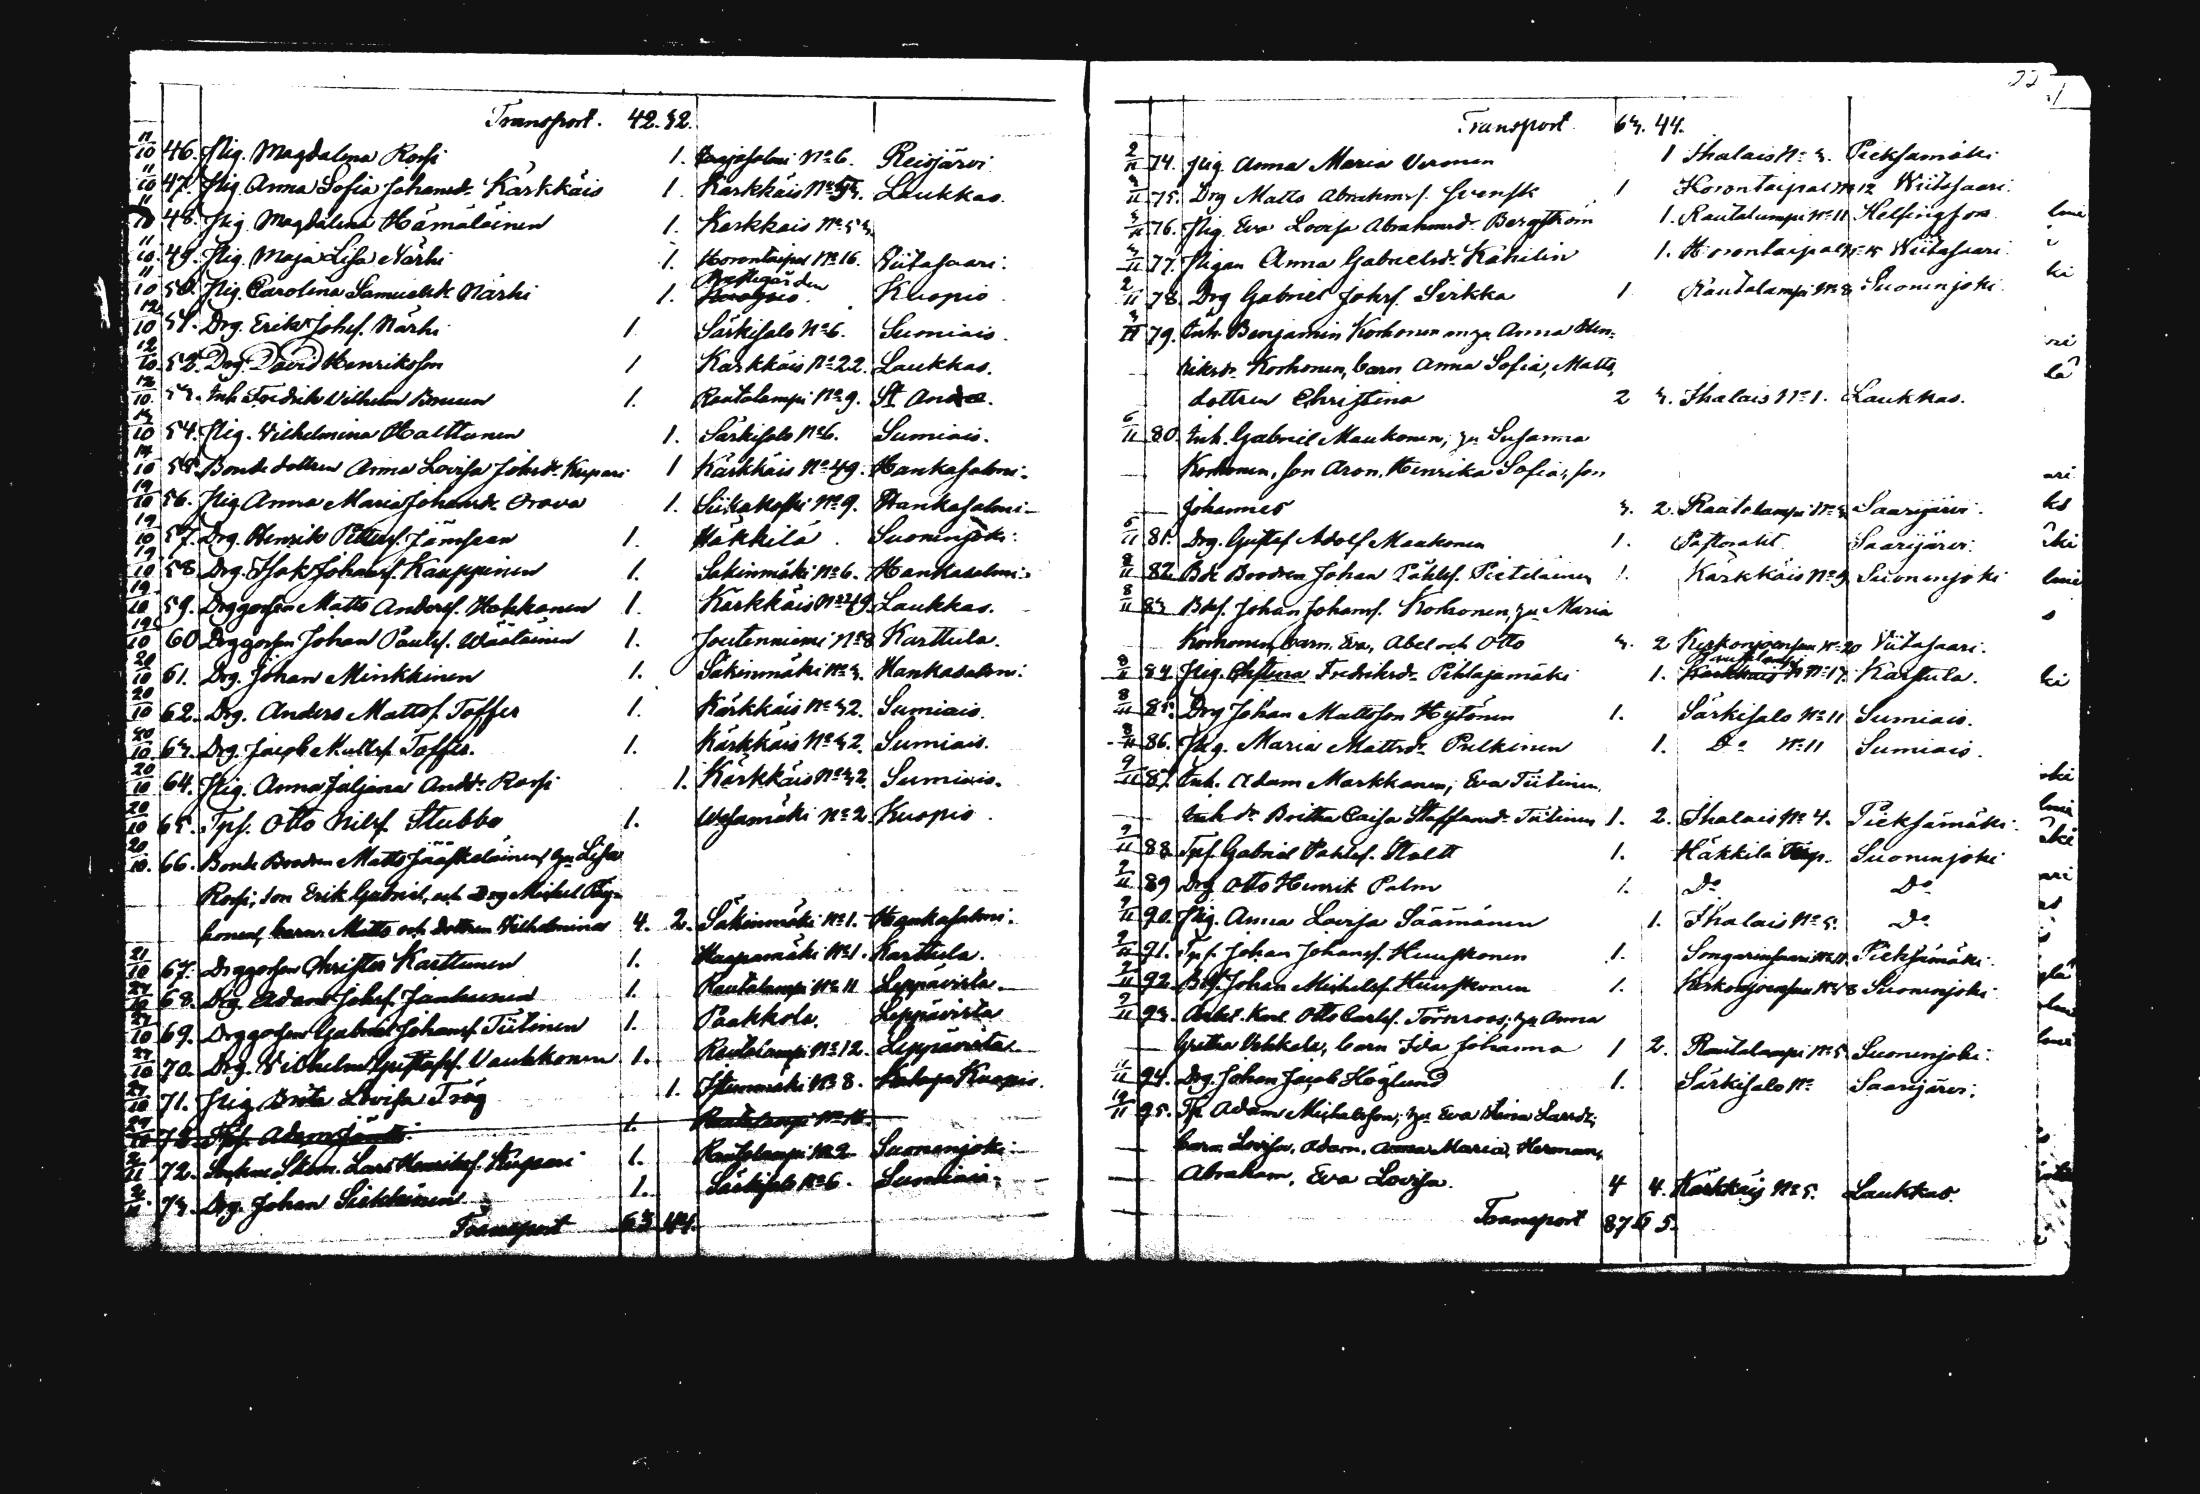 Transport. 42. 32.
11/10 46. Pig. Magdalena Rossi 1. No 6. Reisjärvi
11/10 47. Pig. Anna Sofia Johansdr Kärkkäis 1. Kärkkäis No 53. Laukkas.
11/10 48. Pig. Magdalena Hämäläinen 1. Karkkais No 53
11/10 49. Pig. Maja Lisa Närhi 1. Horontaipal No 16. Viitasaari.
Prestegården
11/10 50. Pig. Carolina Samuelsdr Närhi 1. Kuopio
12/10 51. Drg. Erik Johsf. Närhi 1 Särkisalo No 6. Sumiais.
12/10 52. Drg. David Henriksson 1 Karkkäis No 22. Laukkas.
12/10 53. Inh. Fredrik Wilhelm Bruun 1. Rautalampi No 9. St
13/10 54. Pig. Vilhelmina Halttunen 1. Särkisalo No 6. Sumiais.
17/10 55. Bonde dottren Anna Lovisa Johsdr Kupari 1 Kärkkäis No 49. Hankasalmi.
19/10 56. Pig Anna Maria Johansdr Orava 1. Siikakoski No 9. Hankasalmi
19/10 57. Drg. Henrik Pettersf. Jämsean 1. Häkkilä. Suoninjoki.
19/10 58 Drg. Isak Johansf. Kauppinen 1. Säkinmäki No 6. Hankasalmi.
19/10 59. Drggossen Matts Andersf. Hokkanen 1. Kärkkäis No 49. Laukkas.
19/10 60 Drggossen Johan Paulsf. Wäätäinen 1. Joutenniemi No 8 Karttula.
20/10 61. Drg. Johan Minkkinen 1. Säkinmäki No 3. Hankasalmi.
20/10 62. Drg. Anders Mattsf. Toffer 1. Kärkkäis No 32. Sumiais.
20/10 63. Drg. Jacob Mattsf. Toffer. 1. Kärkkäis No 32. Sumiais.
20/10 64. Pig. Anna Juljana Andsdr Rossi 1. Kärkkäis No 32. Sumiais.
20/10 65. Tpf. Otto Nilsf. Stubbe 1. Wesamäki No 2. Kuopio.
20/10 66. Bonde Brodren Matts Jääskeläinen, hu Lisa
Rossi, son Erik Gabriel, och Drg Mickel
barn Matts och dottren Vilhelmina 4. 2. Säkinmäki No 1. Hankasalmi.
21/10 67. Drggossen Christer Karttunen 1. Haapamäki No 1. Karttula.
27/10 68. Drg. Adam Johsf. Janhunen 1. Rautalampi No 11 Leppävirta.
27/10 69. Drggossen Gabriel Johansf. Tiitinen 1. Paakkola. Leppävirta
27/10 70. Drg. Vilhelm Gustafsf. Vauhkonen 1. Rautalampi No 12. Leppävirta
27/10 71. Pig Brita Lovisa Träg 1. Istunmäki No 8. Kuopio.
27/10 72. Tpf. Adam 1. Rautalampi No 11.
2/11 72. Lars Henriksf. Kupari 1. Rautalampi No 2 Suonenjoki
2/11 73. Drg. Johan 1. Särkisalo No 6. Sumiais.
Transport 63 44.
Transport 63. 44.
2/11 74. Pig Anna Maria Veronen 1 Ihalais No 3. Pieksämäki
3/11 75. Drg Matts Abrahmsf. Svensk 1 Horontaipal No 12 Wiitasaari.
3/11 76. Pig. Eva Lovisa Abrahmsdr Bergström 1. Rautalampi No 11 Helsingfors
3/11 77. Pigan Anna Gabrielsdr Kahilin 1. Horontaipal No 15 Wiitasaari.
2/11 78. Drg Gabriel Johsf. Sirkka 1 Rautalampi No 8 Suoninjoki.
3/11 79. Inh. Benjamin Korhonen m. hu Anna Hen-
riksdr Korhonen, barn Anna Sofia, Matts,
dottren Christina 2 3. Ihalais No 1. Laukkas.
6/11 80. Inh. Gabriel Maukonen, hu Susanna
Korhonen, son Aron, Henrika Sofia, son
Johannes 3. 2. Rautalampi No 3 Saarijärvi.
6/11 81. Drg. Gustaf Adolf Maukonen 1. Pastoratet Saarijärvi.
8/11 82. Bde Brodren Johan Påhlsf. Pietiläinen 1. Kärkkäis No 9 Suonenjoki
8/11 83 Bdsf. Johan Johansf. Korhonen, hu Maria
Korhonen, barn. Eva, Abel och Otto 3. 2 Kerkonjoensuu No 20 Viitasaari.
8/11 84. Pig. Christina Fredriksdr Pihlajamäki 1. No 17. Karstula.
8/11 85. Drg Johan Mattsson Hytönen 1. Särkisalo No 11 Sumiais.
8/11 86. Pig. Maria Mattsdr Pulkinen 1. Do No 11 Sumiais.
9/11 87. Inh. Adam Markkanen; Eva Tiitinen
Inh dr Britha Caisa Staffansdr Tiitinen 1. 2. Ihalais No 4. Pieksämäki.
9/11 88 Tpf. Gabriel Påhlsf. Stoltt 1. Häkkilä Suonenjoki
9/11 89 Drg Otto Henrik Palm 1. Do Do
9/11 90. Pig. Anna Lovisa Säämänen 1. Ihalais No 5. Do
9/11 91. Tpf. Johan Johansf. Huuskonen 1. Songarinsaari No 11. Pieksämäki.
9/11 92. Bdsf. Johan Michelsf. Huuskonen 1. Kerkonjoensuu No 18 Suonenjoki
9/11 93. Arbet. Karl Otto Carlsf. Törnroos, hu Anna
Gretha Vehkala, barn Ida Johanna 1 2. Rautalampi No 5 Suonenjoki.
11/11 94. Drg. Johan Jacob Höglund 1. Särkisalo No Saarijärvi.
12/11 95. Tp. Adam Michelsson, hu Eva Stina Larsdr,
barn Lovisa, Adam, Anna Maria, Herman,
Abraham, Eva Lovisa. 4 4. Kärkkäis No 5. Laukkas.
Transport 87 65.